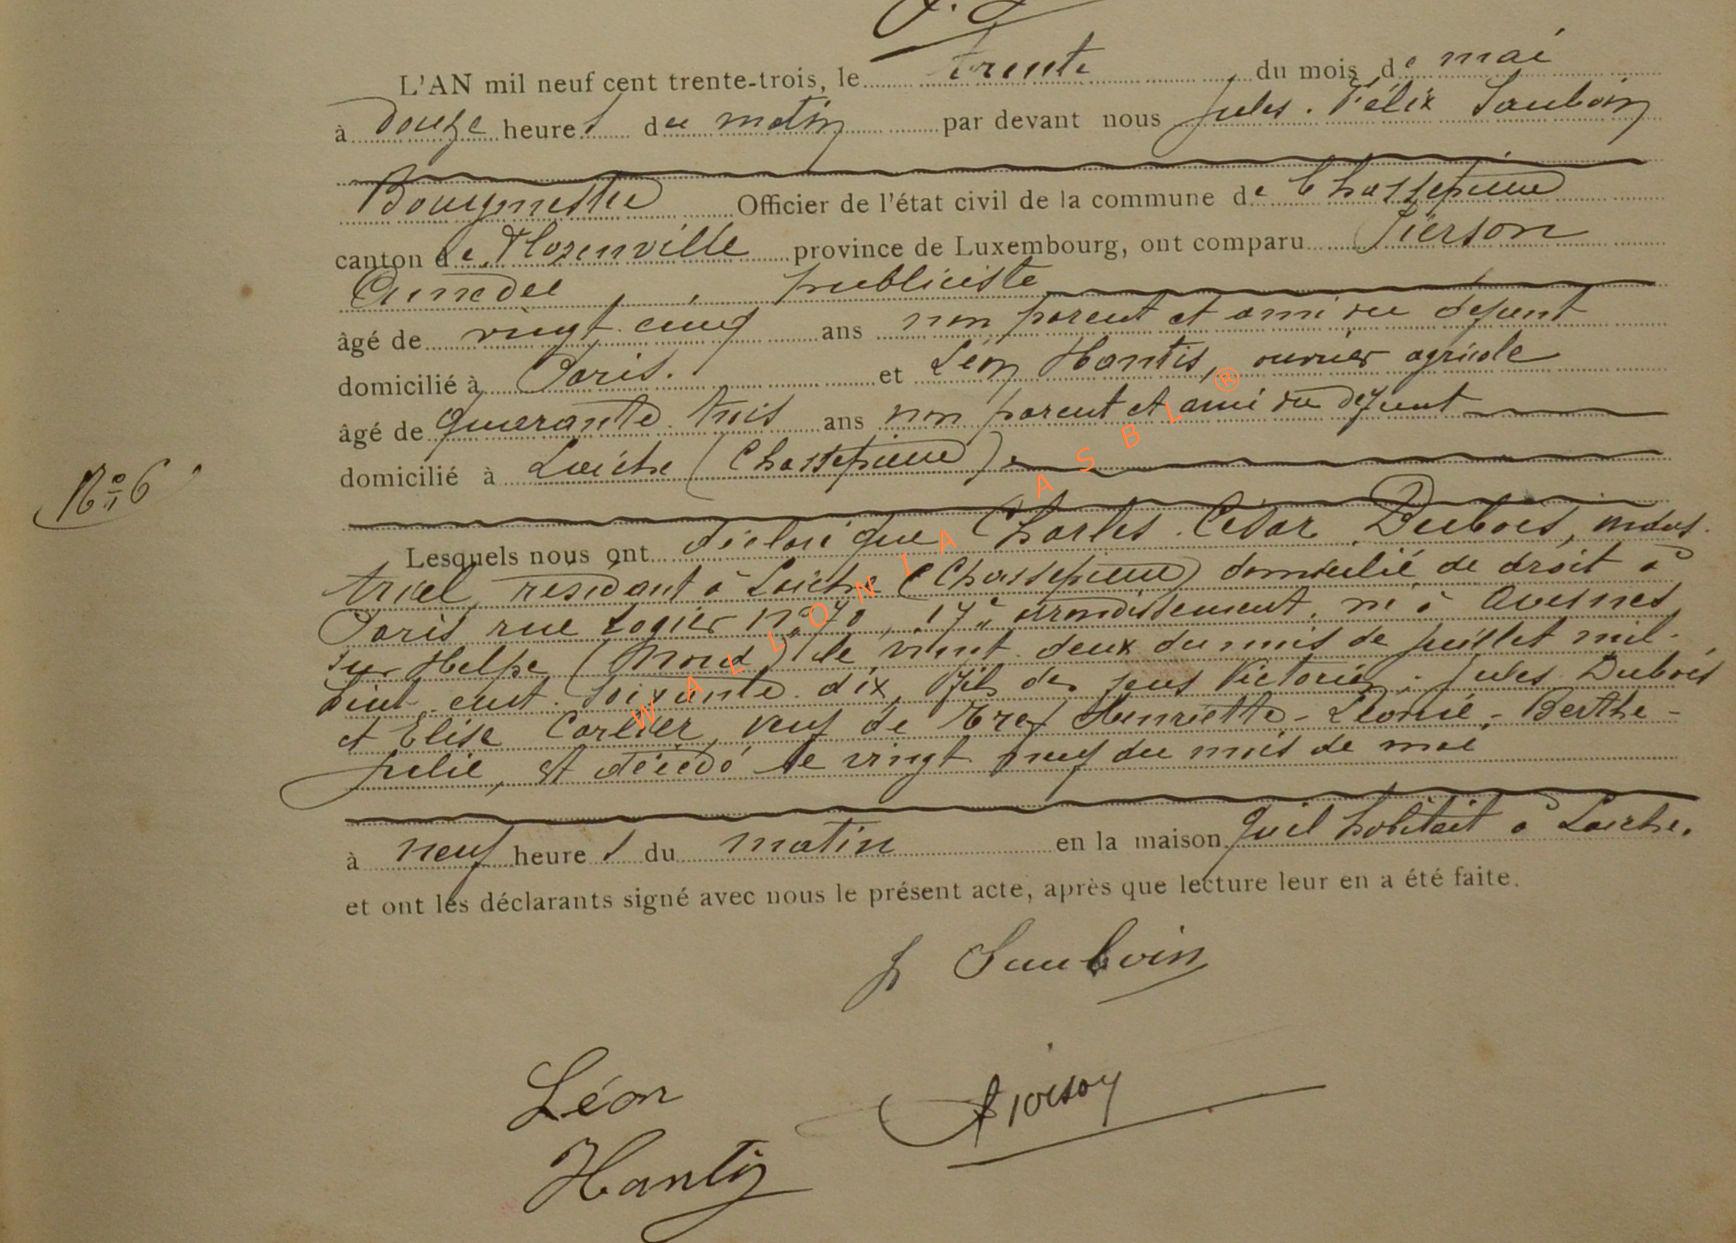 L'AN mil neuf cent trente-trois, le trente du mois de mai
à douze heures du matin par devant nous Jules-Félix Sauboin
Bourgmestre Officier de l'état civil de la commune de Chassepierre
canton de Florenville province de Luxembourg, ont comparu Pierson
Amédée, publiciste
âgé de vingt cinq ans non parent et ami du défunt
domicilié à Paris. et Léon Hantis, ouvrier agricole
âgé de quarante trois ans non parent et ami du défunt
domicilié à Laiche (Chassepierre)
N° 6
Lesquels nous ont déclaré que Charles César Dubois, indus-
triel, résidant à Laiche (Chassepierre) domicilié de droit à
Paris rue Logier n° 70, 17e arrondissement, né à Avesnes
sur Helpe (Nord) le vingt deux du mois de juillet mil-
huit cent soixante dix, fils des feus Victorien-Jules Dubois
et Elise Carlier, veuf de Henriette-Léonie-Berthe-
Julie, est décédé le vingt neuf du mois de mai
à neuf heures du matin en la maison qu'il habitait à Laiche.
et ont les déclarants signé avec nous le présent acte, après que lecture leur en a été faite.
J Sauboin
Léon
Hantis
Pierson
WALLONIA ASBL ®